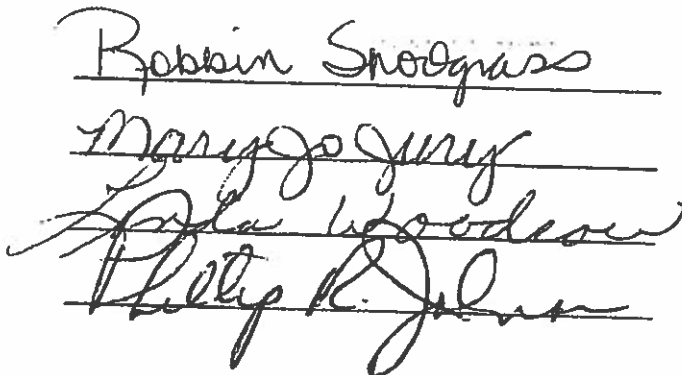 Robbin Snodgrass
Mary Jo Jury
Lynda Woodson
Phillip R. Johnson